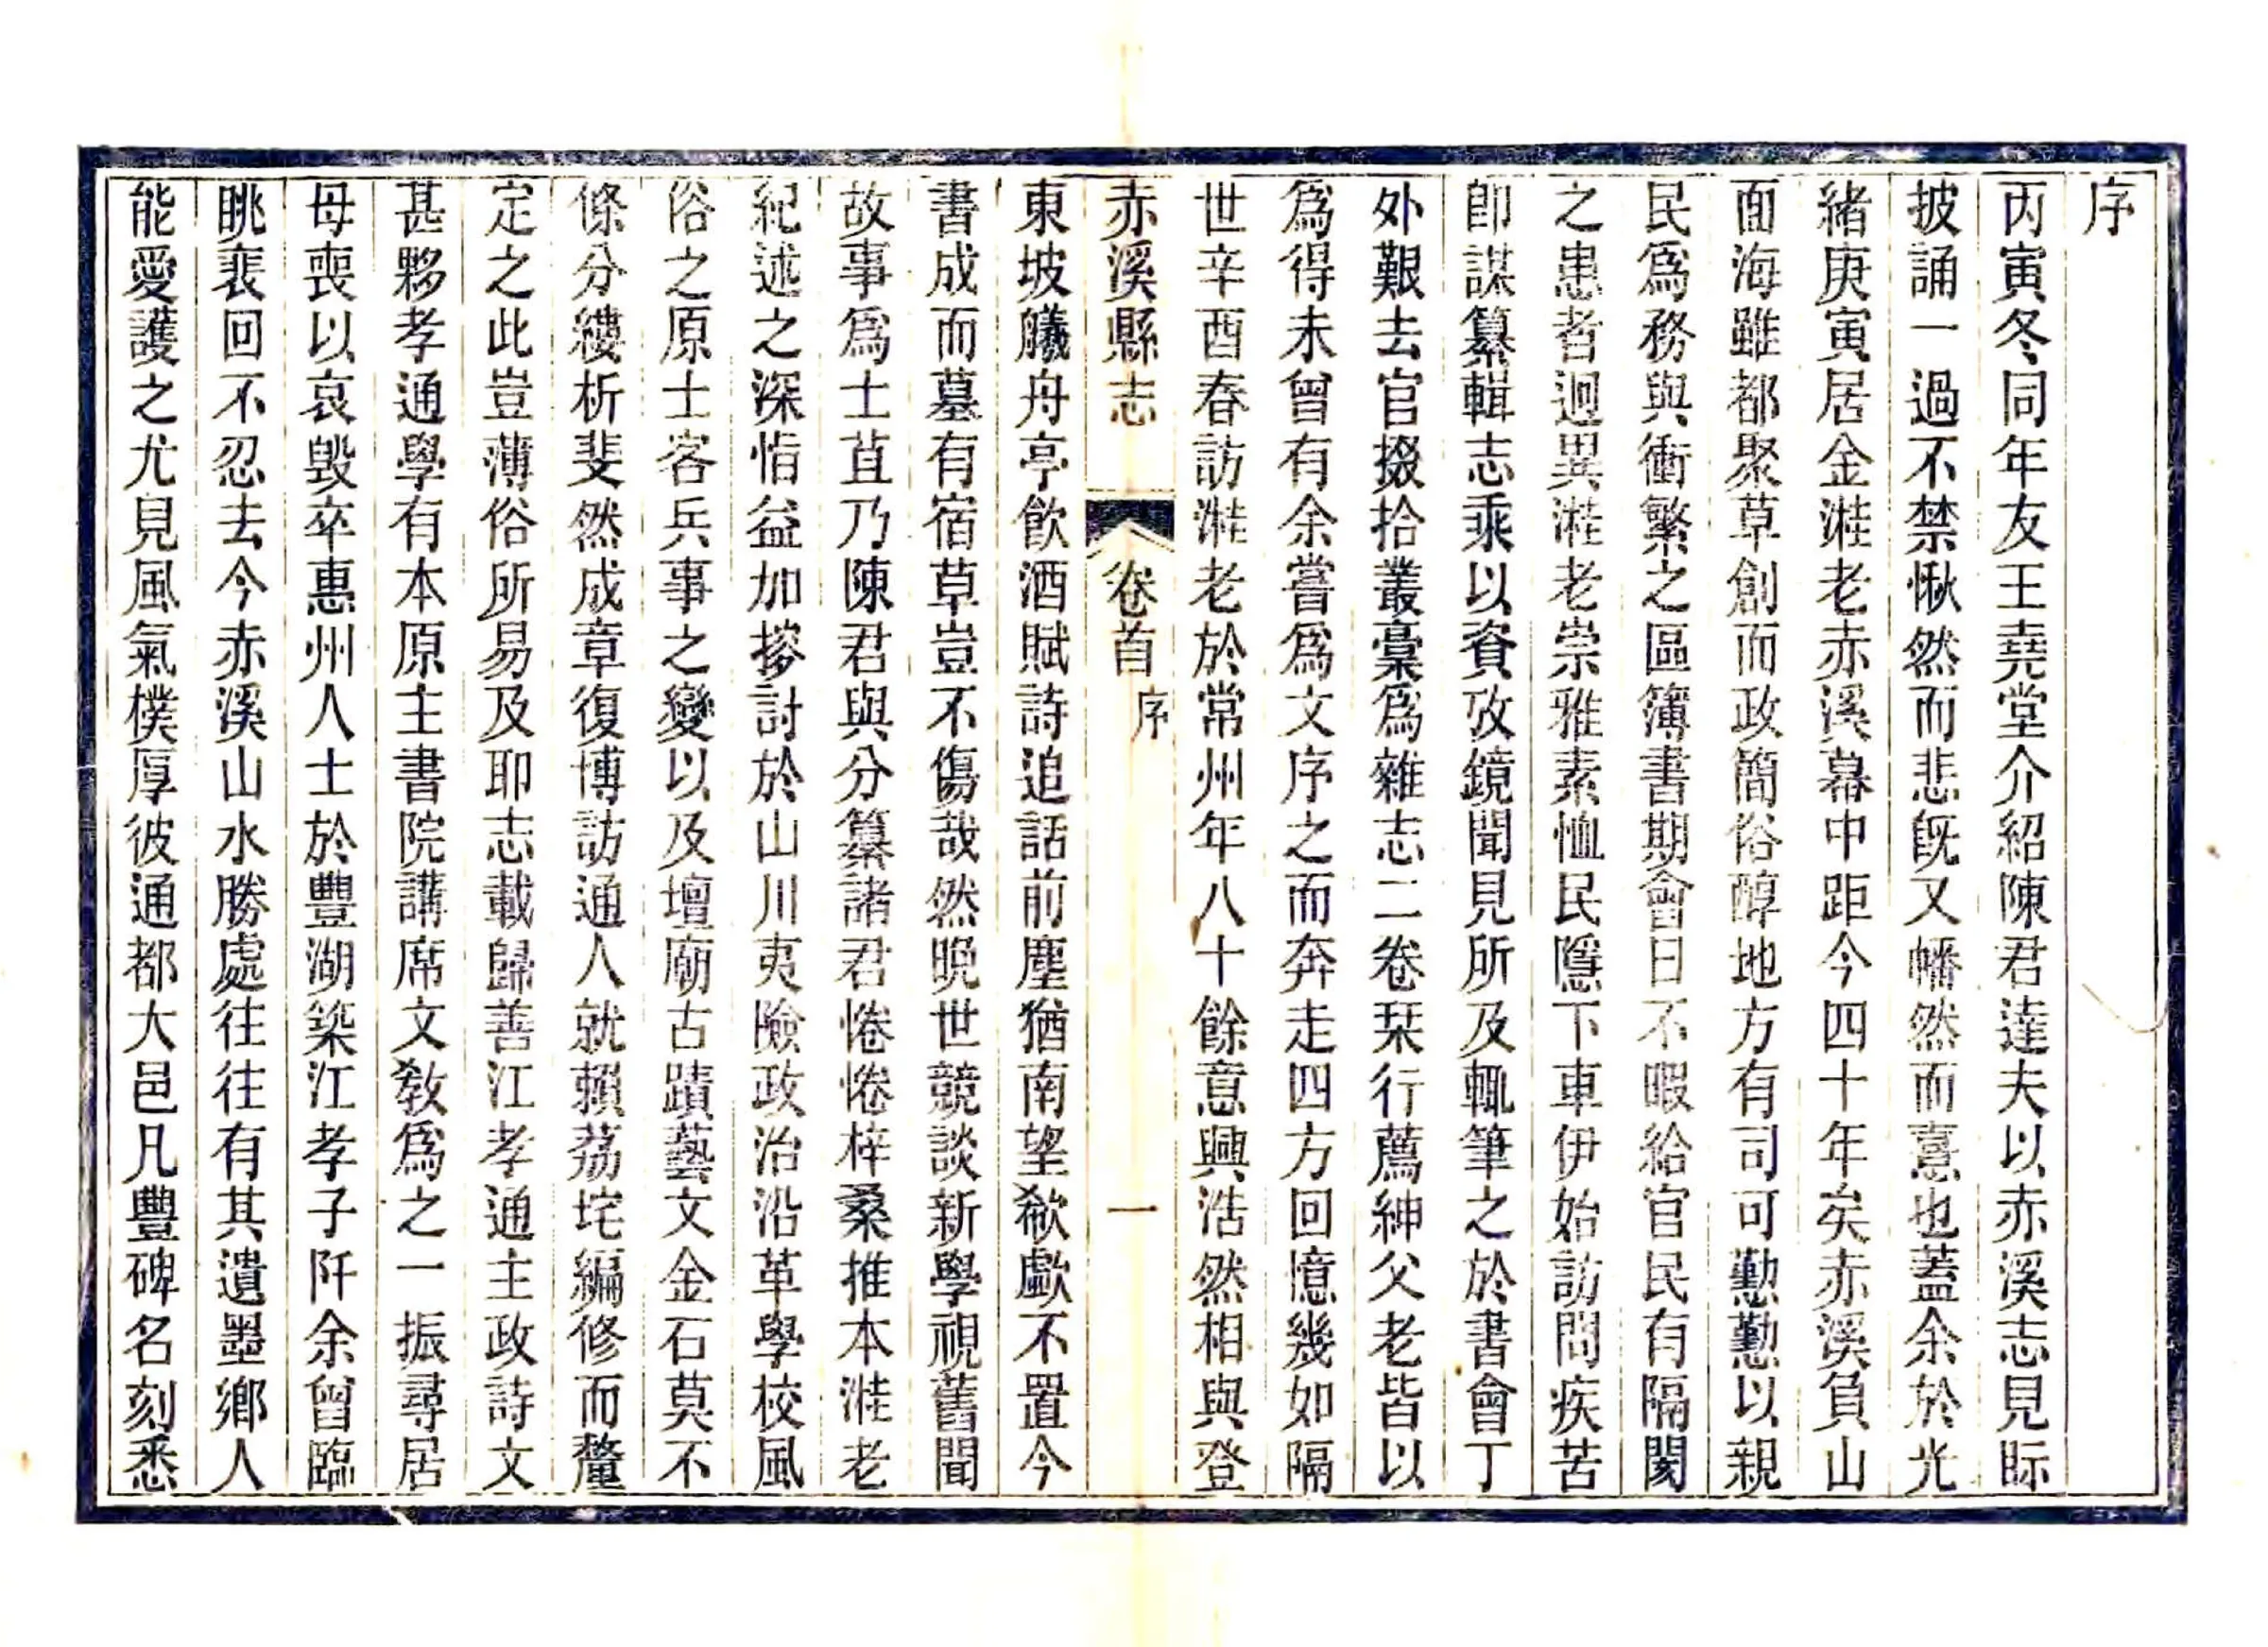 序
丙寅冬同年友王堯堂介紹陳君達夫以赤溪志見眎
披誦一過不禁愀然而悲旣又幡然而憙也蓋余於光
緒庚寅居金溎老赤溪幕中距今四十年矣赤溪負山
面海雖都聚草創而政簡俗醇地方有司可懃懃以親
民爲務與衝繁之區簿書期會日不暇給官民有隔閡
之患者迥異溎老崇雅素恤民隱下車伊始訪問疾苦
卽謀纂輯志乘以資攷鏡聞見所及輒筆之於書會丁
外艱去官掇拾叢稾爲雜志二卷栞行薦紳父老皆以
爲得未曾有余嘗爲文序之而奔走四方回憶幾如隔
世辛酉春訪溎老於常州年八十餘意興浩然相與登
赤溪縣志 卷首 序 一
東坡艤舟亭飮酒賦詩追話前塵猶南望欷歔不置今
書成而墓有宿草豈不傷哉然晚世競談新學視舊聞
故事爲士苴乃陳君與分纂諸君惓惓梓桑推本溎老
紀述之深恉益加摎討於山川夷險政治沿革學校風
俗之原士客兵事之變以及壇廟古蹟藝文金石莫不
條分縷析斐然成章復博訪通人就賴荔垞編修而釐
定之此豈薄俗所易及耶志載歸善江孝通主政詩文
甚夥孝通學有本原主書院講席文敎爲之一振尋居
母喪以哀毀卒惠州人士於豐湖築江孝子阡余曾臨
眺裴回不忍去今赤溪山水勝處往往有其遺墨鄉人
能愛護之尤見風氣樸厚彼通都大邑凡豐碑名刻悉